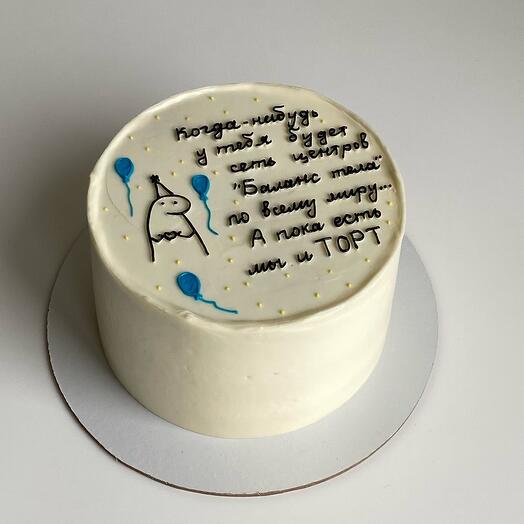 Когда-нибудь
у тебя будет
сеть центров
"Баланс тела"
по всему миру...
А пока есть
мы и ТОРТ